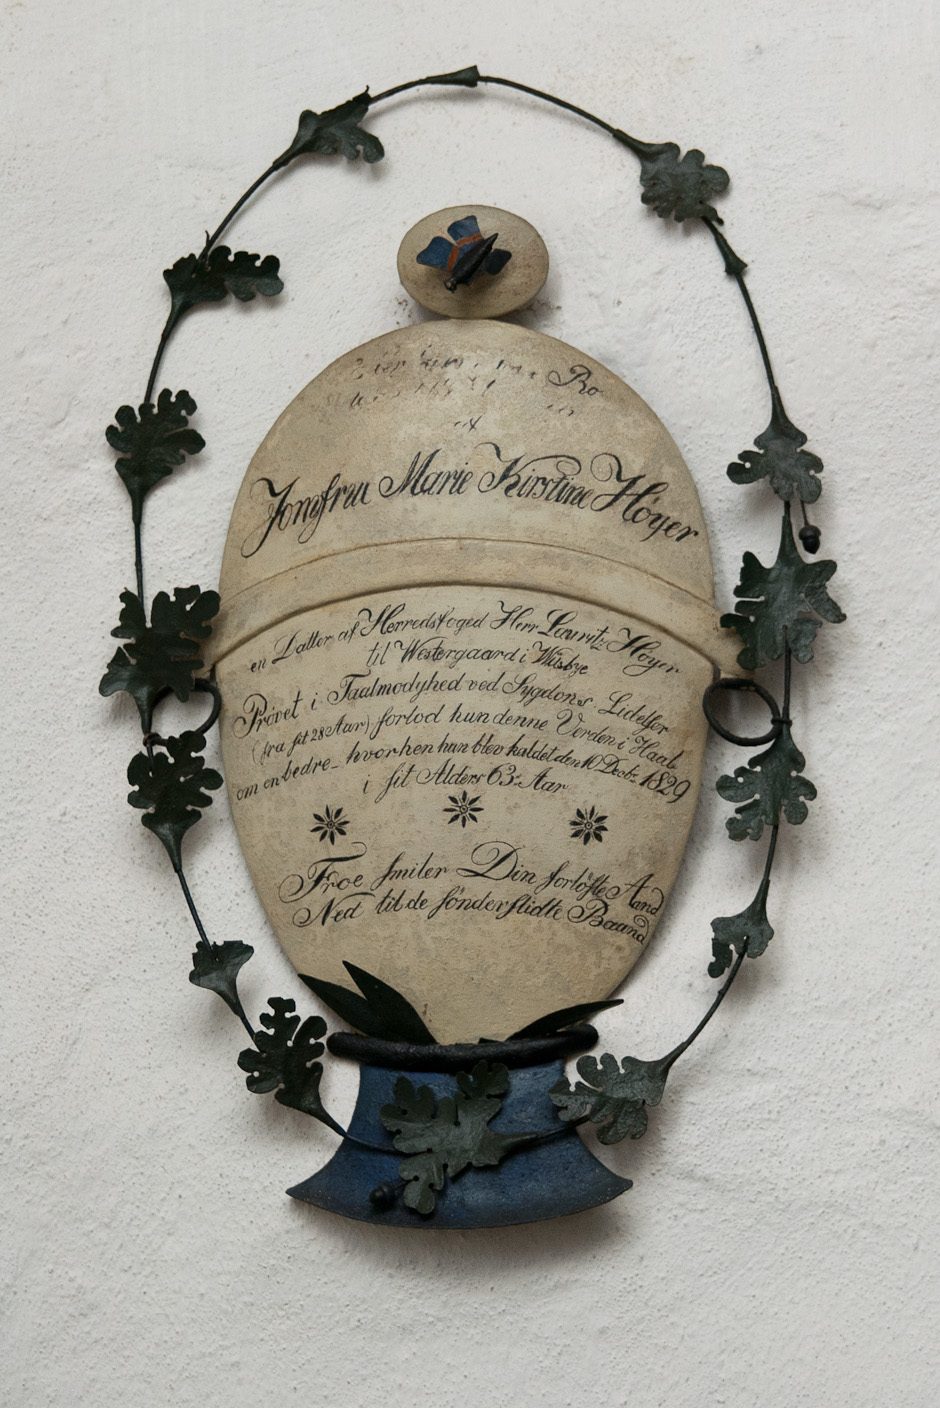 Ro
af
Jomfru Marie Kirstine Høyer
en Datter af Herredsfoged Herr Lauritz Høyer
til Westergaard i Wiisbye
Prøvet i Taalmodyhed ved Sygdoms Lidelser
(fra sit 28 Aar) forlod hun denne Verden i Haab
om en bedre_ hvorhen hun blev kaldet den 10 Decbr. 1829
i sit Alders 63: Aar
Froe smiler Din forløste Aand
Ned til de sønderslidte Baand